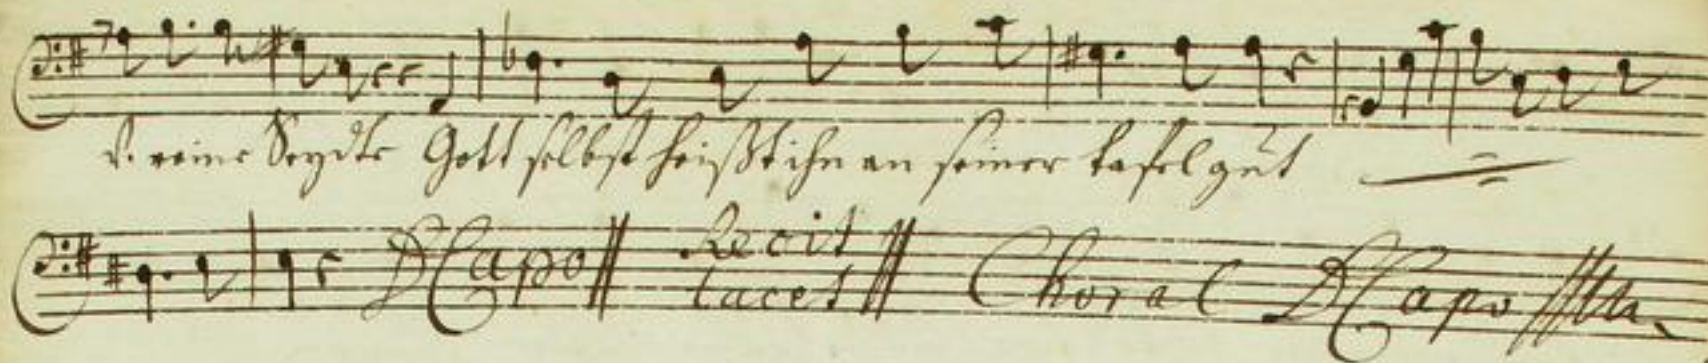 u. reine Seyde Gott selbst heißt ihn an seiner tafel gut
D Capo Recit tacet Choral D Capo